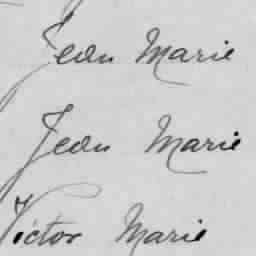 Jean Marie
Jean Marie
Victor Marie